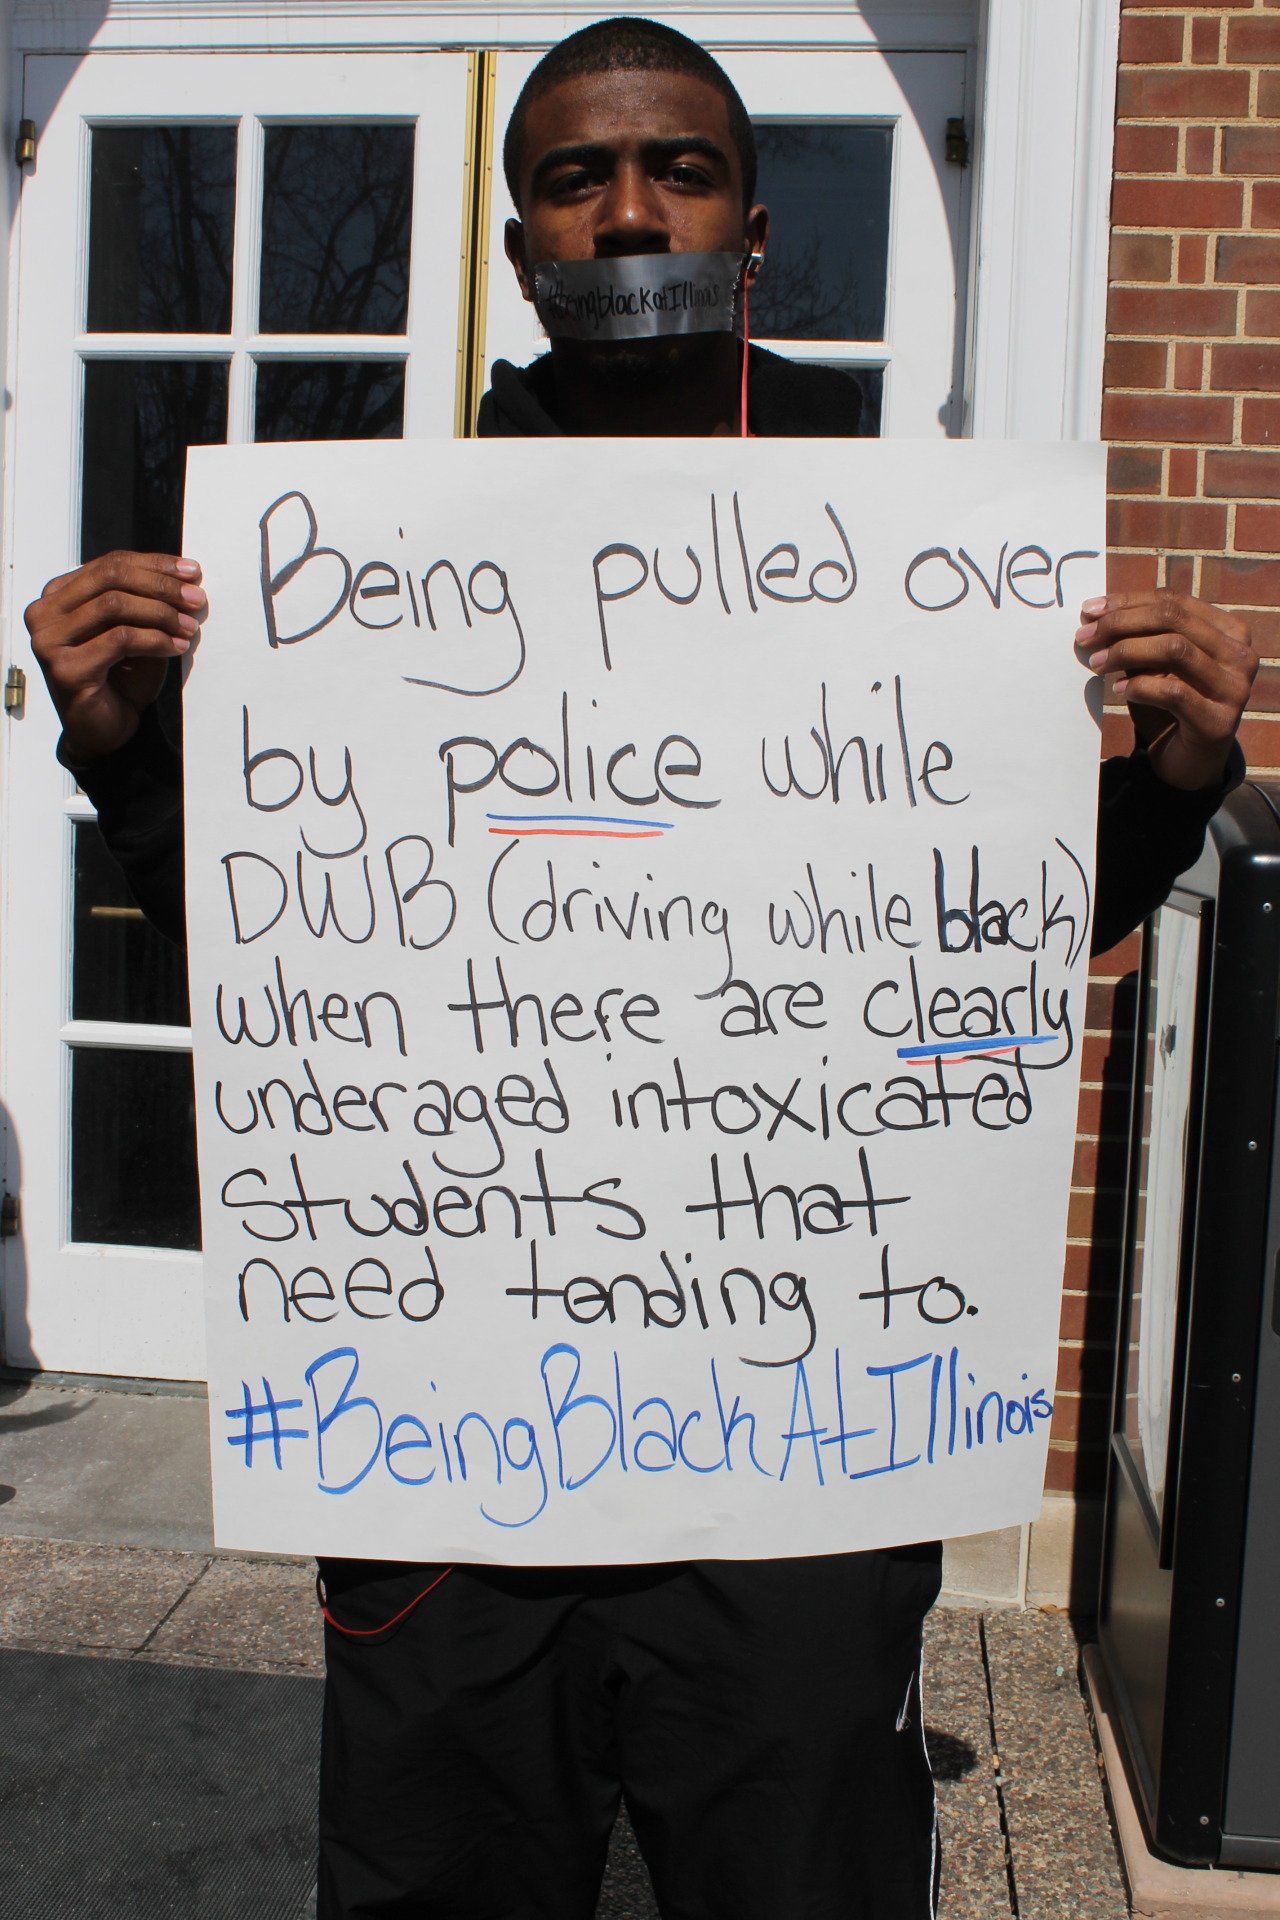 #beingblackatIllinois
Being pulled over
by police while
DWB (driving while black)
when there are clearly
underaged intoxicated
Students that
need tending to.
#BeingBlackAtIllinois